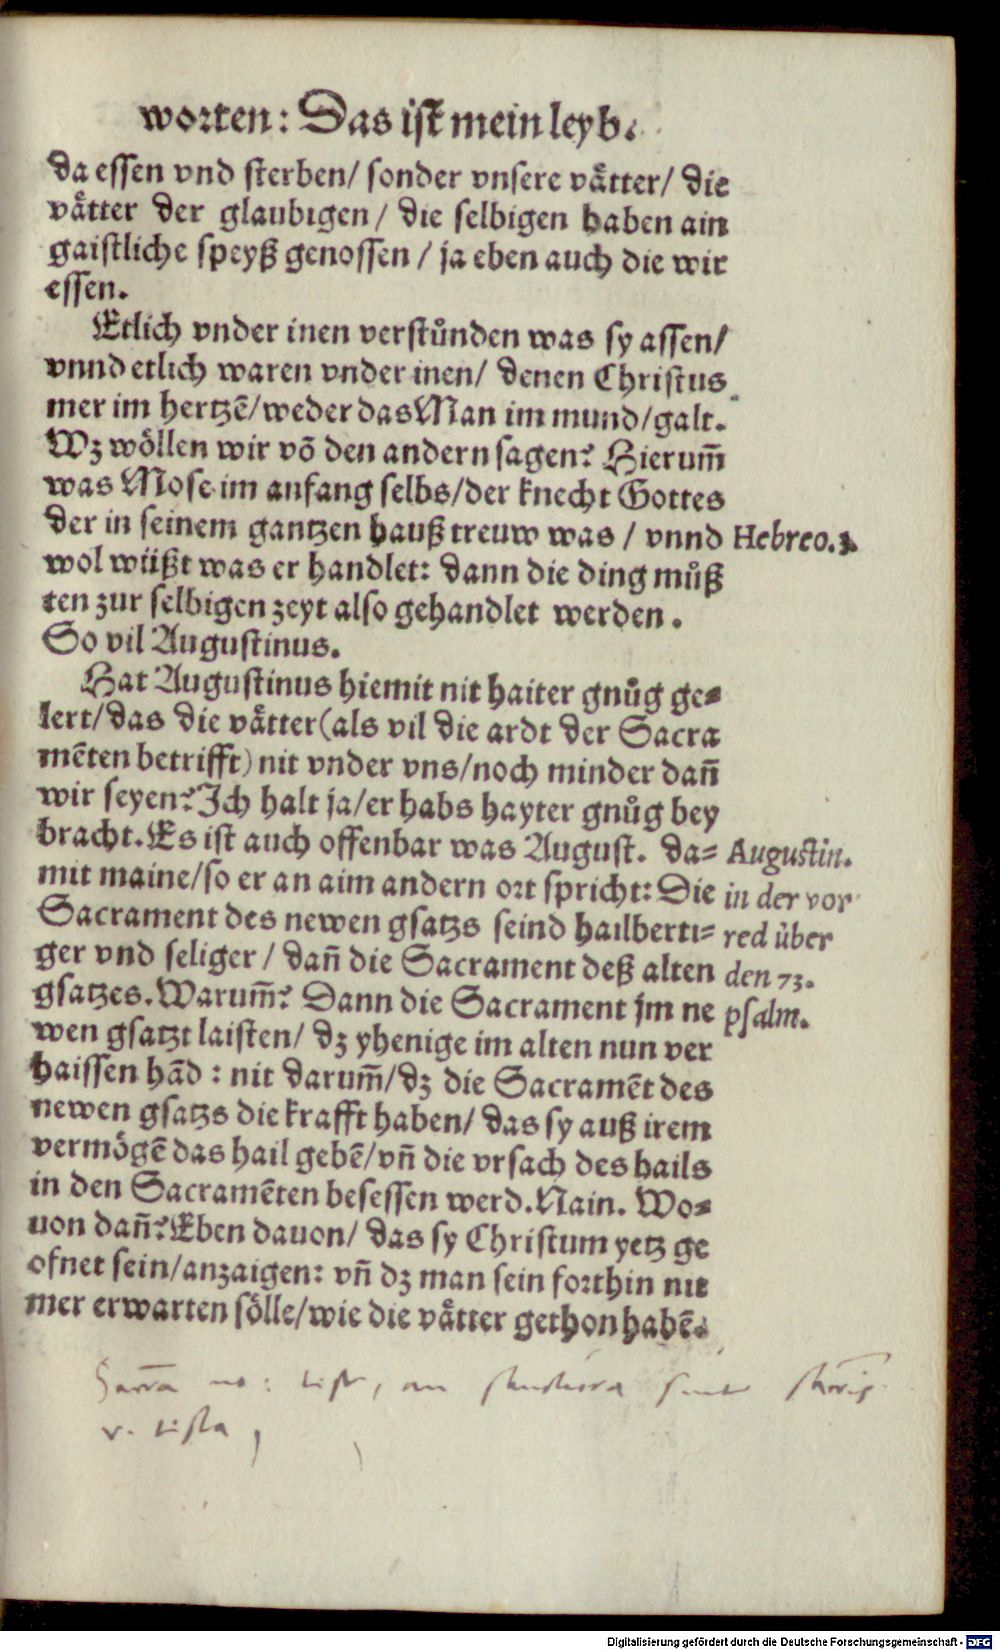 worten: Das ist mein leyb.
da essen vnd sterben/ sonder vnsere vaͤtter/ die
vaͤtter der glaubigen/ die selbigen haben ain
gaistliche speyß genossen/ ja eben auch die wir
essen.
Etlich vnder inen verstuͦnden was sy assen/
vnnd etlich waren vnder inen/ denen Christus
mer im hertzē/weder das Man im mund/galt.
Wz woͤllen wir võ den andern sagen? Hierum̃
was Mose im anfang selbs/der knecht Gottes
der in seinem gantzen hauß treuw was/ vnnd
Hebreo.3
wol wüßt was er handlet: dann die ding muͦß
ten zur selbigen zeyt also gehandlet werden.
So vil Augustinus.
Hat Augustinus hiemit nit haiter gnuͦg ge-
lert/das die vaͤtter(als vil die ardt der Sacra
mēten betrifft) nit vnder vns/noch minder dañ
wir seyen? Ich halt ja/er habs hayter gnuͦg bey
bracht. Es ist auch offenbar was August. da-
mit maine/so er an aim andern ort spricht: Die
Sacrament des newen gsatzs seind hailberti-
ger vnd seliger/ dañ die Sacrament deß alten
gsatzes. Warum̃? Dann die Sacrament jm ne
wen gsatzt laisten/ dz yhenige im alten nun ver
haissen hãd: nit darum̃/dz die Sacramēt des
newen gsatzs die krafft haben/ das sy auß irem
vermoͤgē das hail gebē/vñ die vrsach des hails
in den Sacramēten besessen werd. Nain. Wo-
uon dañ? Eben dauon/ das sy Christum yetz ge
ofnet sein/anzaigen: vñ dz man sein forthin nit
mer erwarten soͤlle/wie die vaͤtter gethon habē.
Augustin.
in der vor
red uͤber
den 73.
psalm.
Digitalisierung gefördert durch die Deutsche Forschungsgemeinschaft - DFG